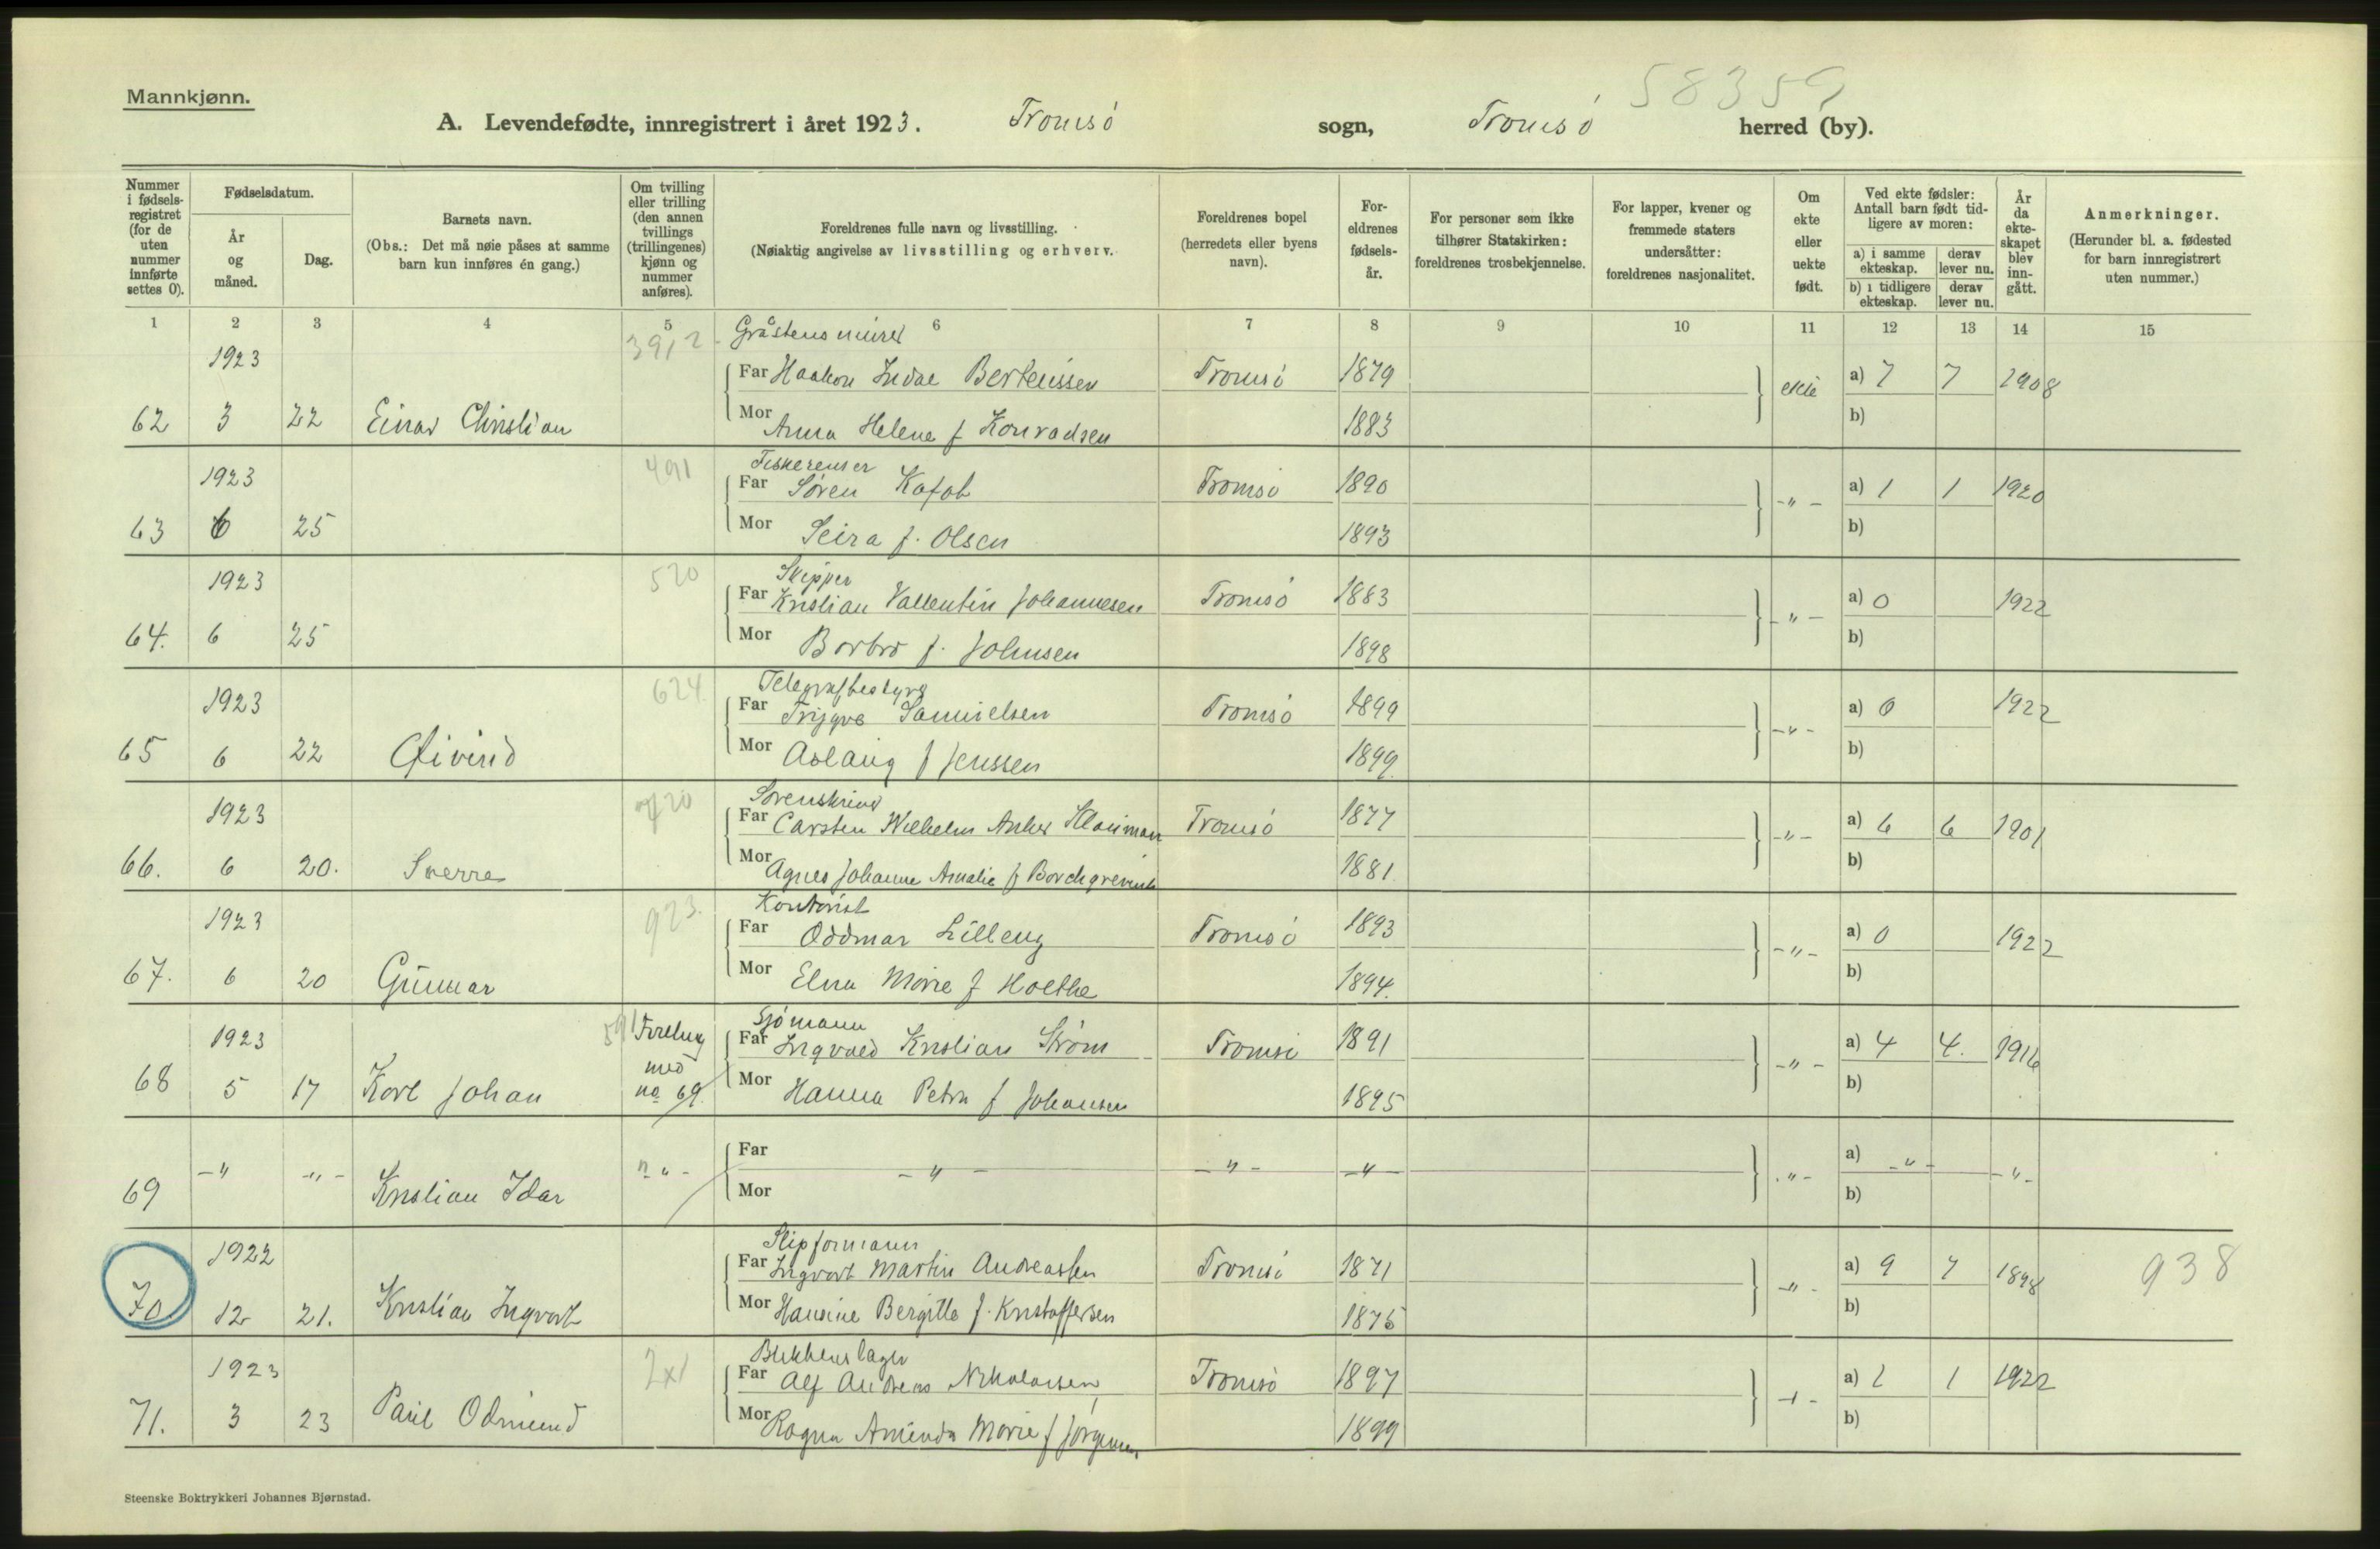 58359
Mannkjønn.
A. Levendefødte, innregistrert i året 1923. Tromsö sogn, Tromsö herred (by).
Nummer i fødselsregistret (for de uten nummer innførte settes 0).
Fødselsdatum.
År og måned.
Dag.
Barnets navn.
(Obs.: Det må nøie påses at samme barn kun innføres én gang.)
Om tvilling eller trilling (den annen tvillings (trillingenes) kjønn og nummer anføres).
Foreldrenes fulle navn og livsstilling.
(Nøiaktig angivelse av livsstilling og erhverv.
Foreldrenes bopel (herredets eller byens navn).
Foreldrenes fødselsår.
For personer som ikke tilhører Statskirken: foreldrenes trosbekjennelse.
For lapper, kvener og fremmede staters undersåtter: foreldrenes nasjonalitet.
Om ekte eller uekte født.
Ved ekte fødsler: Antall barn født tidligere av moren:
a) i samme ekteskap. derav lever nu.
b) i tidligere ekteskap. derav lever nu.
År da ekteskapet blev inngått.
Anmerkninger.
(Herunder bl. a. fødested for barn innregistrert uten nummer.)
1 2 3 4 5 6 7 8 9 10 11 12 13 14 15
1923 3912 Gråstensmurer
Far Haakon Indal Berteussen Tromsö 1879 ekte a) 7 7 1908
62 3 22 Einar Christian Mor Anna Helene f Konradsen 1883 b)
1923 491
Far Søren Tromsö 1890 -"- a) 1 1 1920
63 6 25 Mor f. Olsen 1893 b)
1923 520 Skipper
Far Kristian Vallentin Johannesen Tromsö 1883 -"- a) 0 1922
64. 6 25 Mor Borbro f. Johnsen 1898 b)
1923 624. Telegrafbestyrer
Far Trygve Samuelsen Tromsö 1899 -"- a) 0 1922
65 6 22 Øivind Mor Aslaug f Jenssen 1899 b)
1923 Sorenskriver
Far Carsten Wilhelm Anker Tromsö 1877 -"- a) 6 6 1901
66. 6 20. Sverre Mor Agnes Johanne Amalie f Borchgrevink 1881 b)
1923 923. Kontorist
Far Oddmar Lilleng Tromsö 1893 -"- a) 0 1922
67. 6 20 Gunnar Mor Elna Marie f Holthe 1894. b)
1923 591 Tvilling Sjömann
Far Ingvald Kristian Strøm Tromsö 1891 -"- a) 4 4. 1916
68 5 17 Karl Johan med no 69. Mor Hanna Petra f Johansen 1895 b)
69 -" -"- Kristian Idar -"- Far -"- -"- -"- -"- a) -"- -"-
Mor b)
1922 Slipformann
Far Ingvart Martin Andreassen Tromsö 1871 -"- a) 9 7 1898 938
70 12 21. Kristian Ingvart Mor Hansine Bergitte f. Kristoffersen 1875 b)
1923 2x1 Blikkenslager
Far Alf Andreas Nikolaisen Tromsö 1897 -"- a) 1 1 1922
71. 3 23 Paul Odmund Mor Ragna Aminda Marie f Jörgensen 1899 b)
Steenske Boktrykkeri Johannes Bjørnstad.